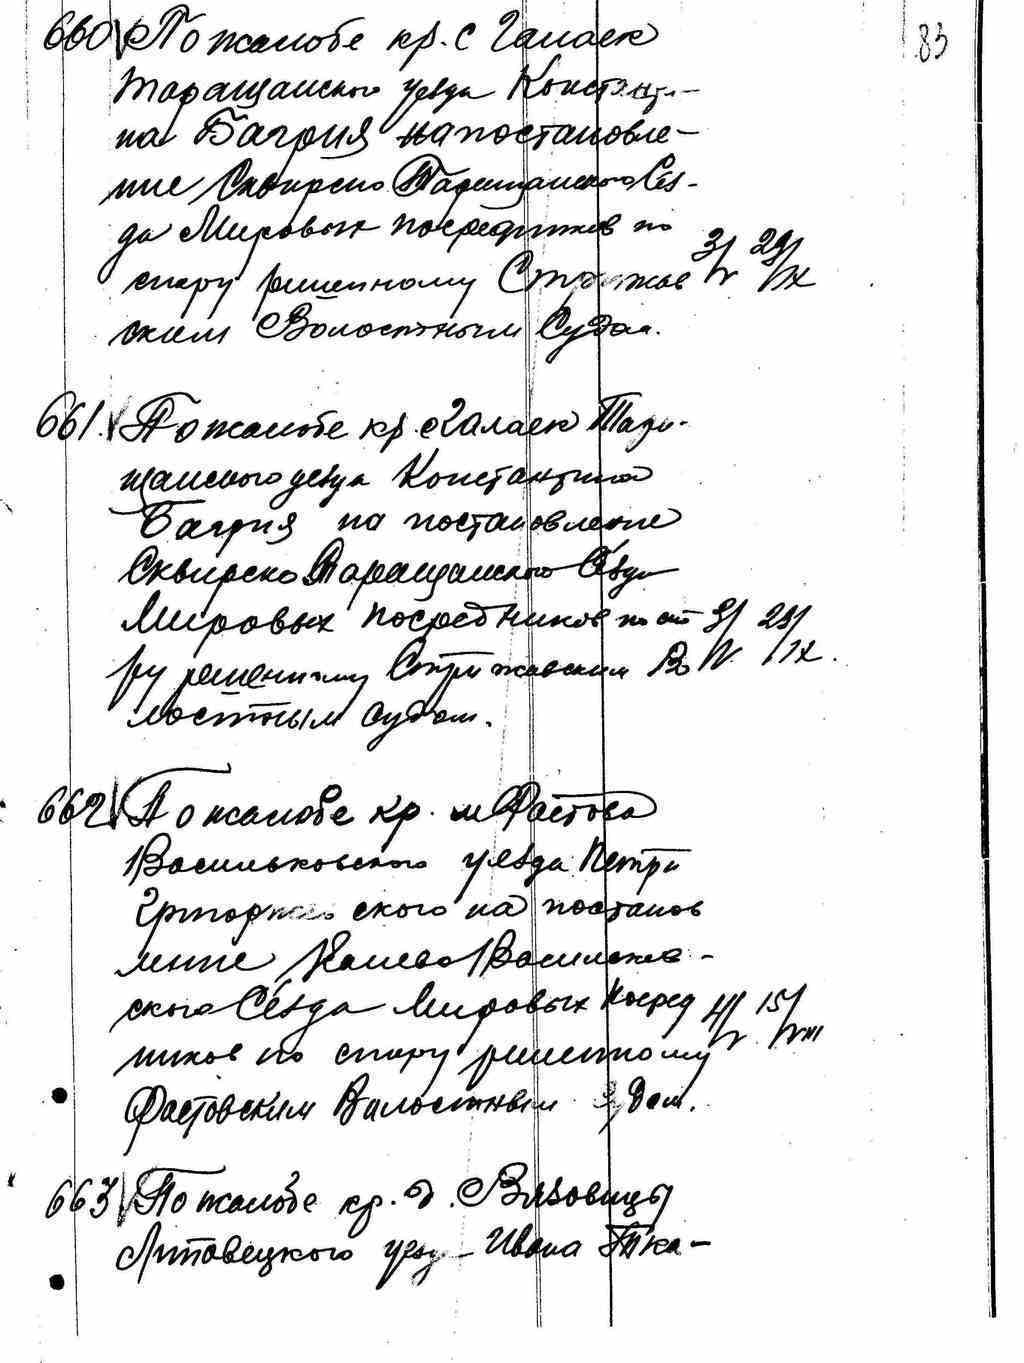 83
660 По жалобе кр. с Галаек
Таращанского уезда Константи-
на Багрия на постановле-
ние Сквирско Таращанского Сез-
да Мировых посредников по
спору решенному Стрижов 3/V 29/IX
ским Волостным Судом.
661. По жалобе кр. с Галаек Тара-
щанского уезда Константина
Багрия на постановление
Сквирско Таращанского Сѣзда
Мировых посредников по спо 3/V 29/IX.
ру решенному Стрижавским Во
лостным судом.
662 По жалобе кр. м Фастова
Васильковского уезда Петра
ского на постанов
ление Киево Васильков-
ского Сѣзда Мировых Посред 4/V 15/VIII
ников по спору решенному
Фастовским Валостным Судом.
663 По жалобе кр. д. Вязовицы
Липовецкого уезд Ивана Тка-